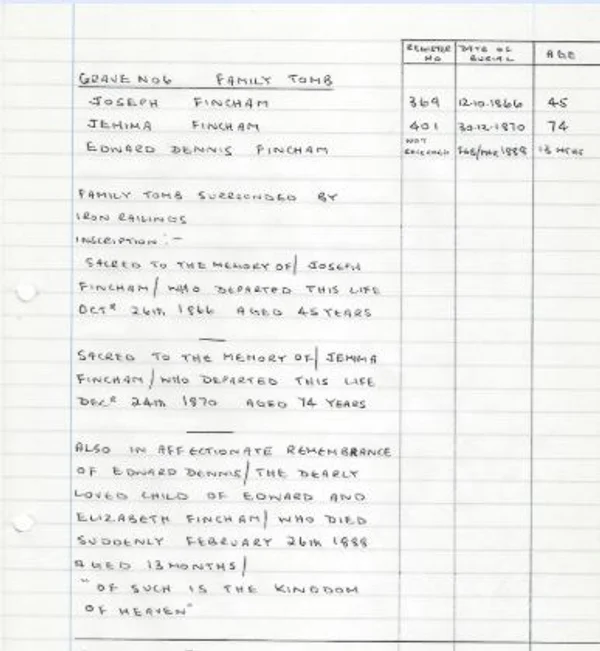 REGISTER NO DATE OF BURIAL AGE
GRAVE NO 6 FAMILY TOMB
JOSEPH FINCHAM 369 12.10.1866 45
JEMIMA FINCHAM 401 30.12.1870 74
EDWARD DENNIS FINCHAM NOT FEB/MAR 1888 13 MTHS
FAMILY TOMB SURRONDED BY
IRON RAILINGS
INSCRIPTION :-
SACRED TO THE MEMORY OF/ JOSEPH
FINCHAM/ WHO DEPARTED THIS LIFE
OCTR 26th 1866 AGED 45 YEARS
SACRED TO THE MEMORY OF/ JEMIMA
FINCHAM/ WHO DEPARTED THIS LIFE
DECR 24th 1870 AGED 74 YEARS
ALSO IN AFFECTIONATE REMEMBRANCE
OF EDWARD DENNIS/ THE DEARLY
LOVED CHILD OF EDWARD AND
ELIZABETH FINCHAM/ WHO DIED
SUDDENLY FEBRUARY 26th 1888
AGED 13 MONTHS/
"OF SUCH IS THE KINGDOM
OF HEAVEN"